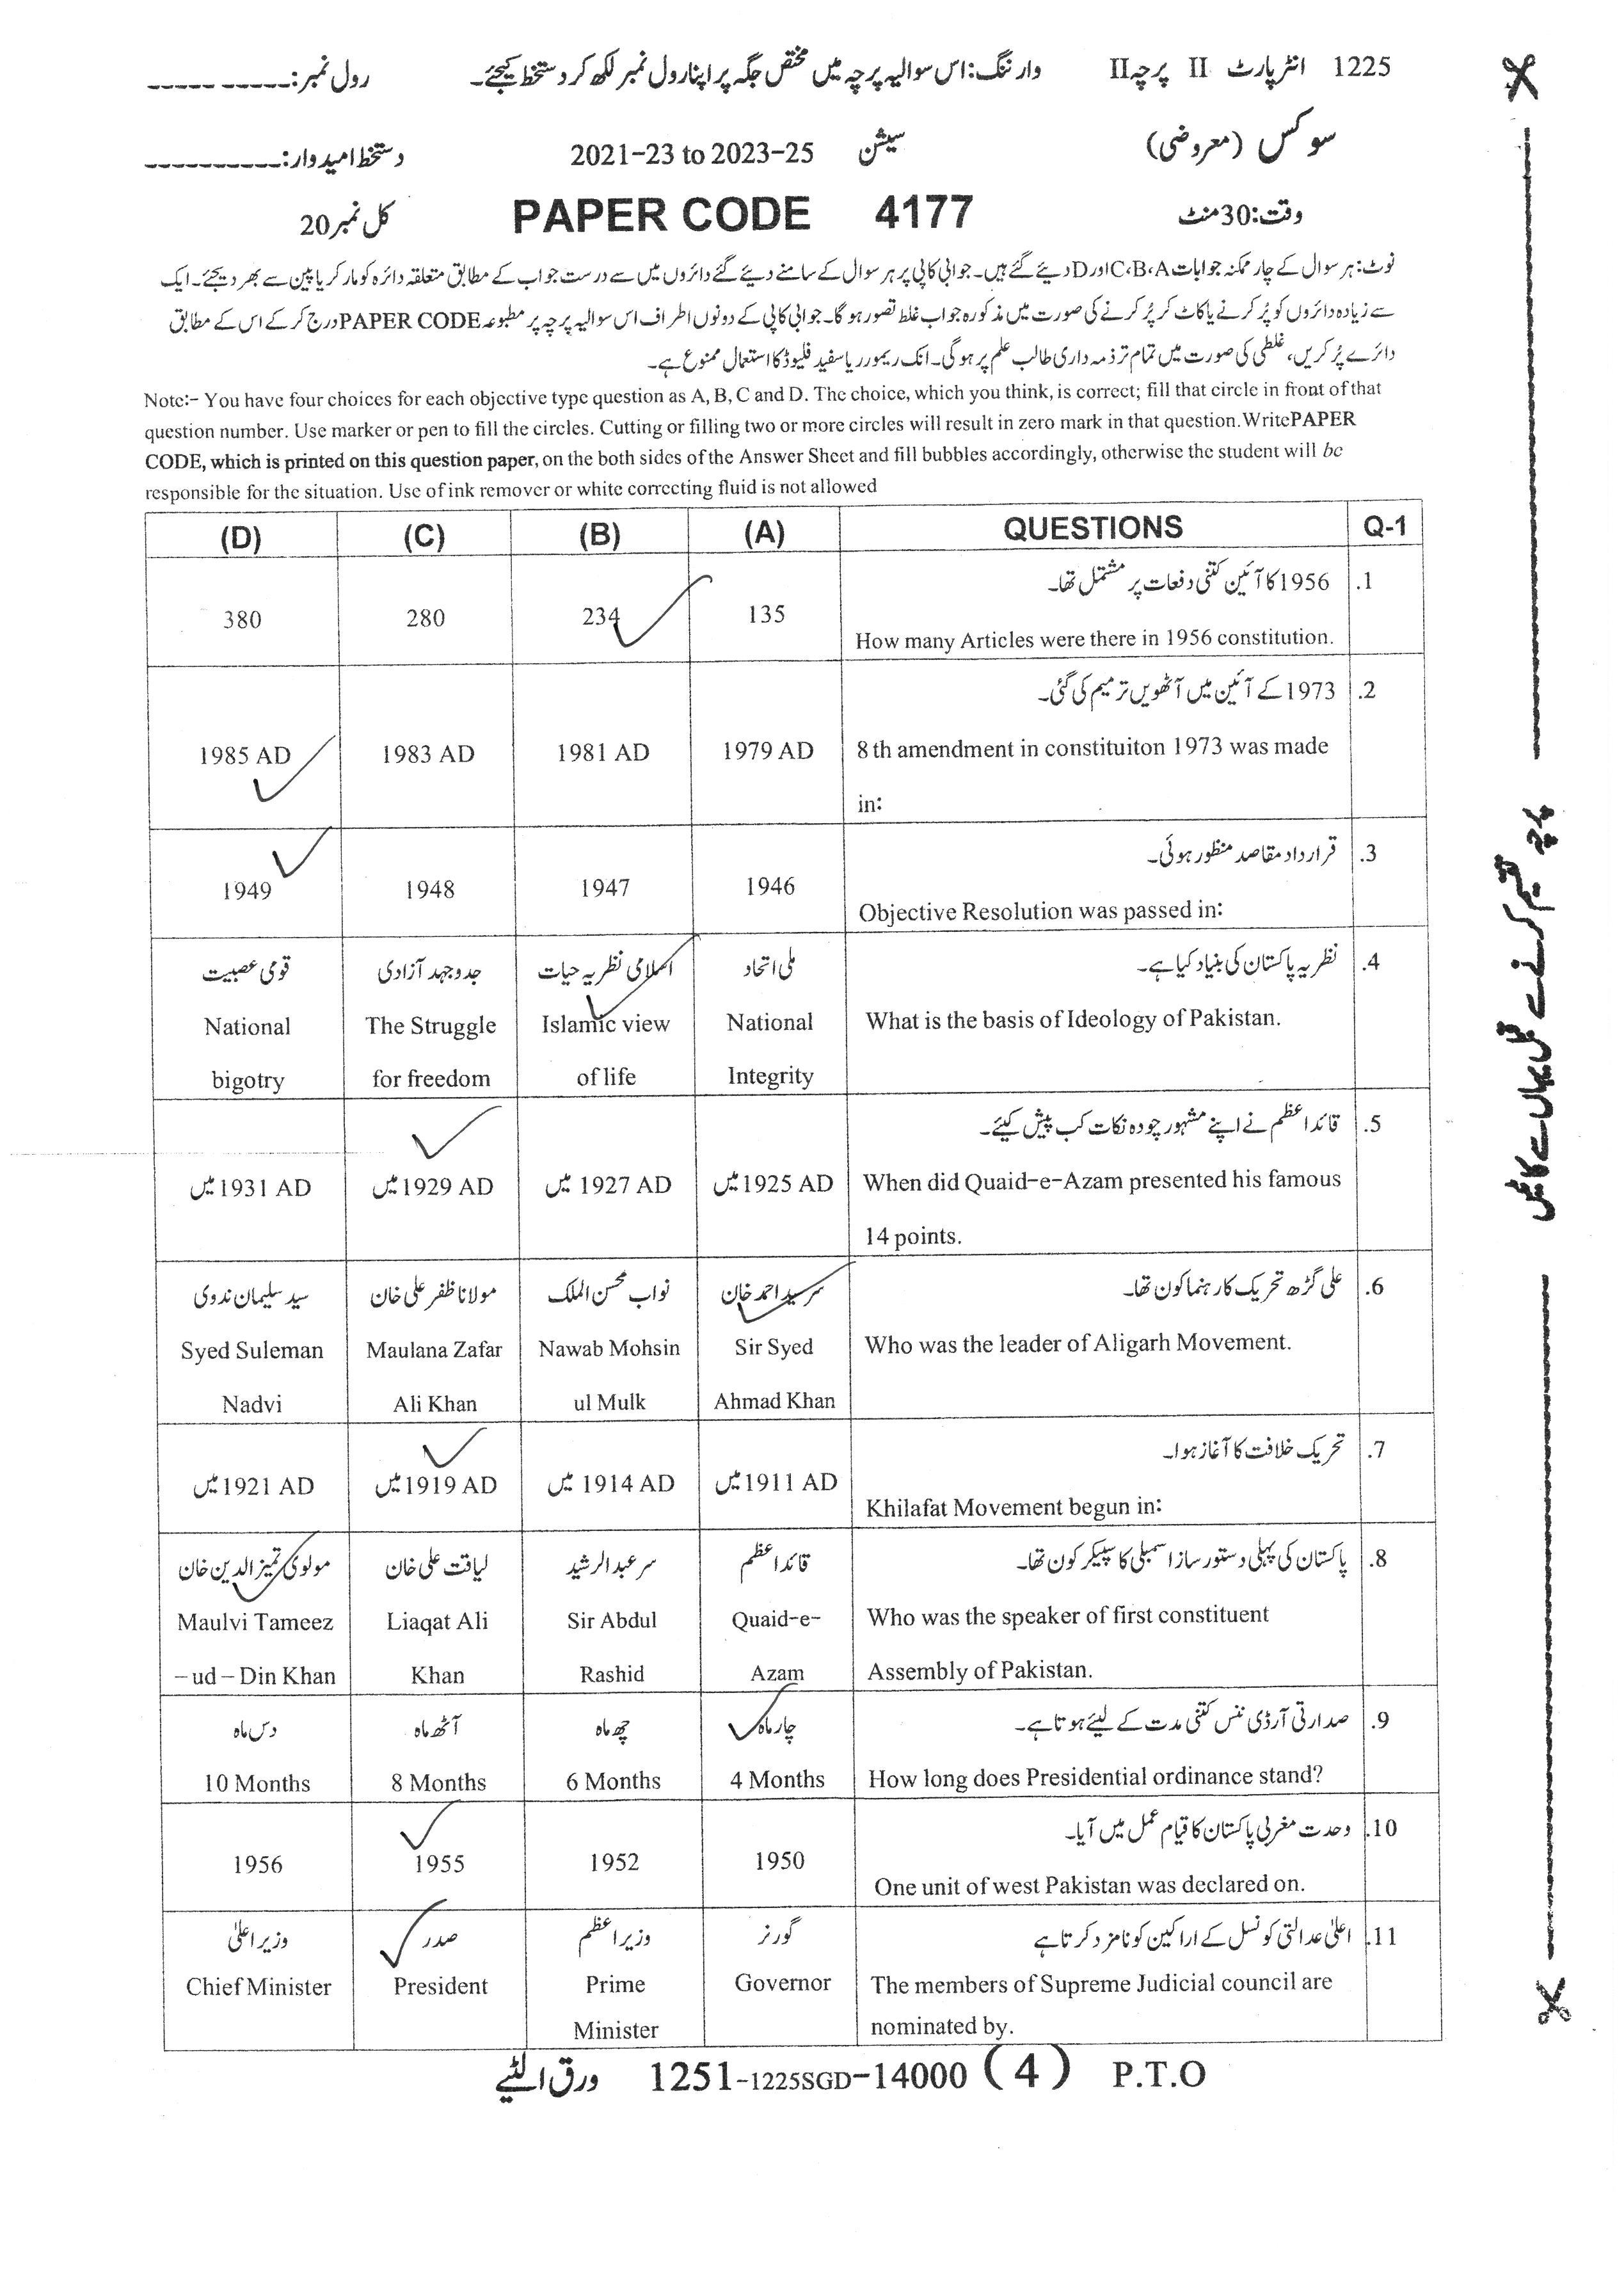 1225 انٹر پارٹ II پرچہ II وارننگ: اس سوالیہ پرچہ میں مختص جگہ پر اپنا رول نمبر لکھ کر دستخط کیجئے۔ رول نمبر:__________
سوکس (معروضی) سیشن 2021-23 to 2023-25 دستخط امیدوار:__________
وقت: 30 منٹ PAPER CODE 4177 کل نمبر 20
نوٹ: ہر سوال کے چار ممکنہ جوابات C،B،A اور D دیئے گئے ہیں۔ جوابی کاپی پر ہر سوال کے سامنے دیئے گئے دائروں میں سے درست جواب کے مطابق متعلقہ دائرہ کو مارکر یا پین سے بھر دیجئے۔ ایک
سے زیادہ دائروں کو پُر کرنے یا کاٹ کر پُر کرنے کی صورت میں مذکورہ جواب غلط تصور ہوگا۔ جوابی کاپی کے دونوں اطراف اس سوالیہ پرچہ پر مطبوعہ PAPER CODE درج کر کے اس کے مطابق
دائرے پُر کریں، غلطی کی صورت میں تمام تر ذمہ داری طالب علم پر ہوگی۔ انک ریمور ر یا سفید فلیوڈ کا استعمال ممنوع ہے۔
Note:- You have four choices for each objective type question as A, B, C and D. The choice, which you think, is correct; fill that circle in front of that
question number. Use marker or pen to fill the circles. Cutting or filling two or more circles will result in zero mark in that question.WritePAPER
CODE, which is printed on this question paper, on the both sides of the Answer Sheet and fill bubbles accordingly, otherwise the student will be
responsible for the situation. Use of ink remover or white correcting fluid is not allowed
(D) (C) (B) (A) QUESTIONS Q-1
1956 کا آئین کتنی دفعات پر مشتمل تھا۔ .1
380 280 234 135
How many Articles were there in 1956 constitution.
1973 کے آئین میں آٹھویں ترمیم کی گئی۔ .2
1985 AD 1983 AD 1981 AD 1979 AD 8 th amendment in constituiton 1973 was made
in:
قرارداد مقاصد منظور ہوئی۔ .3
1949 1948 1947 1946
Objective Resolution was passed in:
قومی عصبیت جدوجہد آزادی اسلامی نظریہ حیات ملی اتحاد نظریہ پاکستان کی بنیاد کیا ہے۔ .4
National The Struggle Islamic view National What is the basis of Ideology of Pakistan.
bigotry for freedom of life Integrity
قائداعظم نے اپنے مشہور چودہ نکات کب پیش کیئے۔ .5
1931 AD میں 1929 AD میں 1927 AD میں 1925 AD میں When did Quaid-e-Azam presented his famous
14 points.
سید سلیمان ندوی مولانا ظفر علی خان نواب محسن الملک سرسید احمد خان علی گڑھ تحریک کا رہنما کون تھا۔ .6
Syed Suleman Maulana Zafar Nawab Mohsin Sir Syed Who was the leader of Aligarh Movement.
Nadvi Ali Khan ul Mulk Ahmad Khan
تحریک خلافت کا آغاز ہوا۔ .7
1921 AD میں 1919 AD میں 1914 AD میں 1911 AD میں
Khilafat Movement begun in:
مولوی تمیز الدین خان لیاقت علی خان سر عبدالرشید قائداعظم پاکستان کی پہلی دستور ساز اسمبلی کا سپیکر کون تھا۔ .8
Maulvi Tameez Liaqat Ali Sir Abdul Quaid-e- Who was the speaker of first constituent
-ud-Din Khan Khan Rashid Azam Assembly of Pakistan.
دس ماہ آٹھ ماہ چھ ماہ چار ماہ صدارتی آرڈی ننس کتنی مدت کے لیئے ہوتا ہے۔ .9
10 Months 8 Months 6 Months 4 Months How long does Presidential ordinance stand?
وحدت مغربی پاکستان کا قیام عمل میں آیا۔ .10
1956 1955 1952 1950
One unit of west Pakistan was declared on.
وزیر اعلیٰ صدر وزیراعظم گورنر اعلیٰ عدالتی کونسل کے اراکین کو نامزد کرتا ہے .11
Chief Minister President Prime Governor The members of Supreme Judicial council are
Minister nominated by.
ورق الٹیے 1251-1225SGD-14000 (4) P.T.O
پرچہ تقسیم کرنے سے قبل یہاں سے کاٹیں